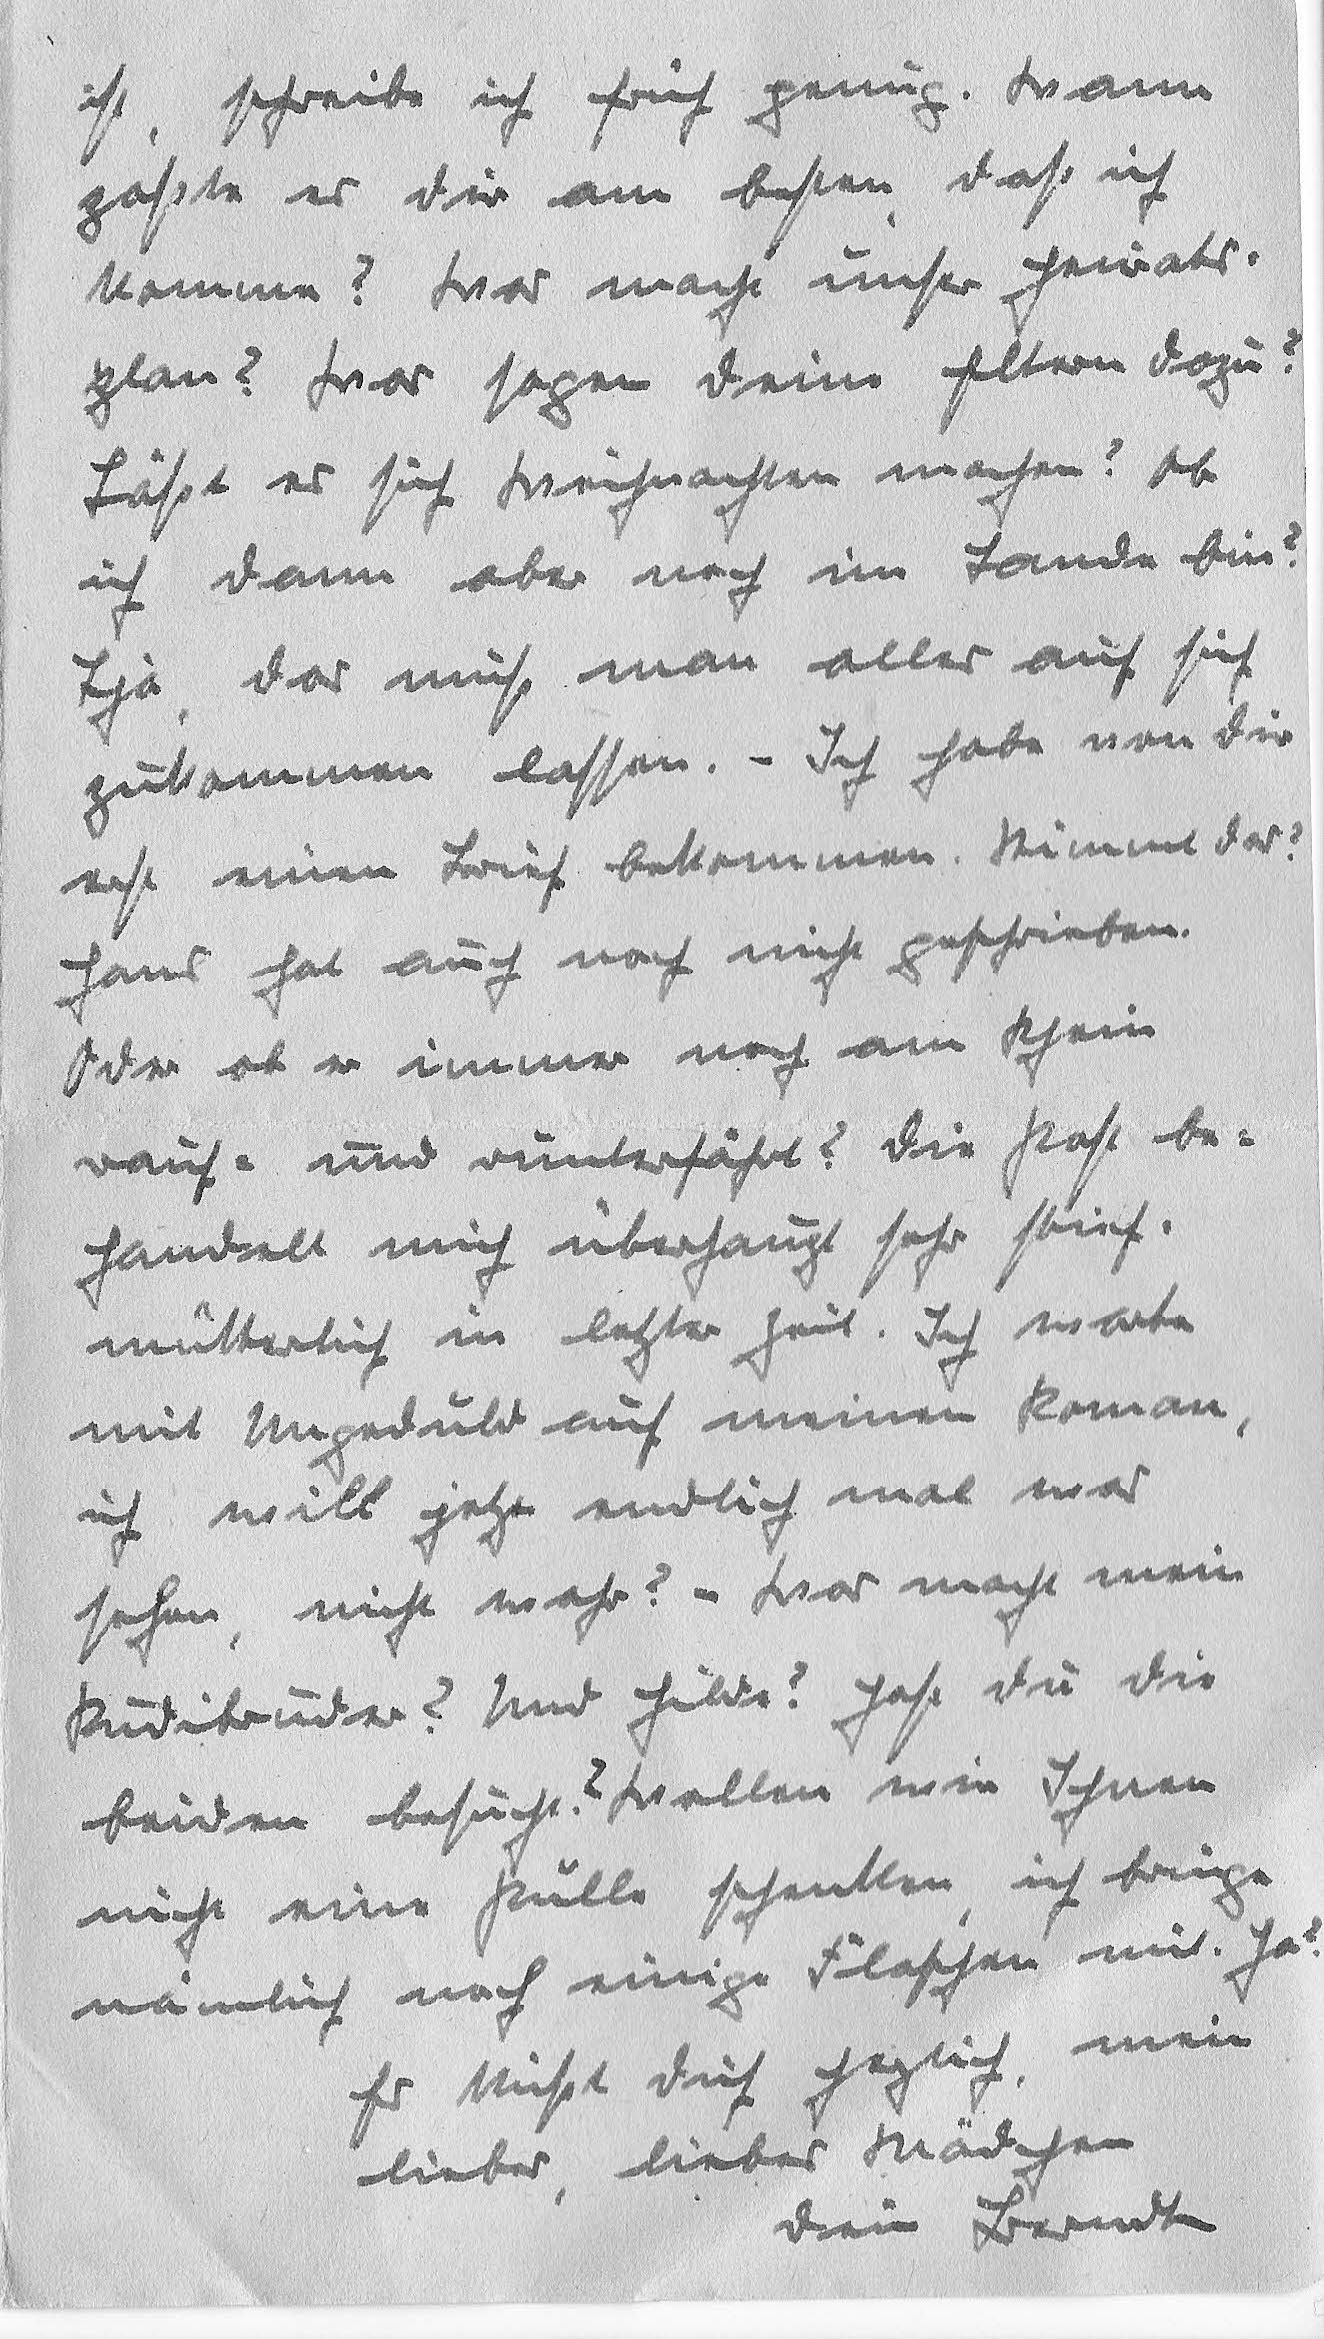 ist, schreibe ich früh genug. Wann
paßte es dir am besten, daß ich
komme? Was macht unser Heirats-
plan? Was sagen deine Eltern dazu?
Läßt es sich Weihnachten machen? Ob
ich dann aber noch im Lande bin?
Tja, das muß man alles auf sich
zukommen lassen. - Ich habe von dir
erst einen Brief bekommen. Stimmt das?
Hans hat auch noch nicht geschrieben.
Oder ob er immer noch am Rhein
rauf- und runterfährt? Die Post be-
handelt mich überhaupt sehr stief-
mütterlich in letzter Zeit. Ich warte
mit Ungeduld auf meinen Roman,
ich will jetzt endlich mal was
sehen, nicht wahr? - Was macht mein
Rudibruder? Und Hilde? Hast du die
beiden besucht? Wollen wir Ihnen
nicht eine Pulle schenken, ich bringe
nämlich noch einige Flaschen mit. Ja?
Es küßt dich herzlich, mein
liebes, liebes Mädchen
dein Berndt